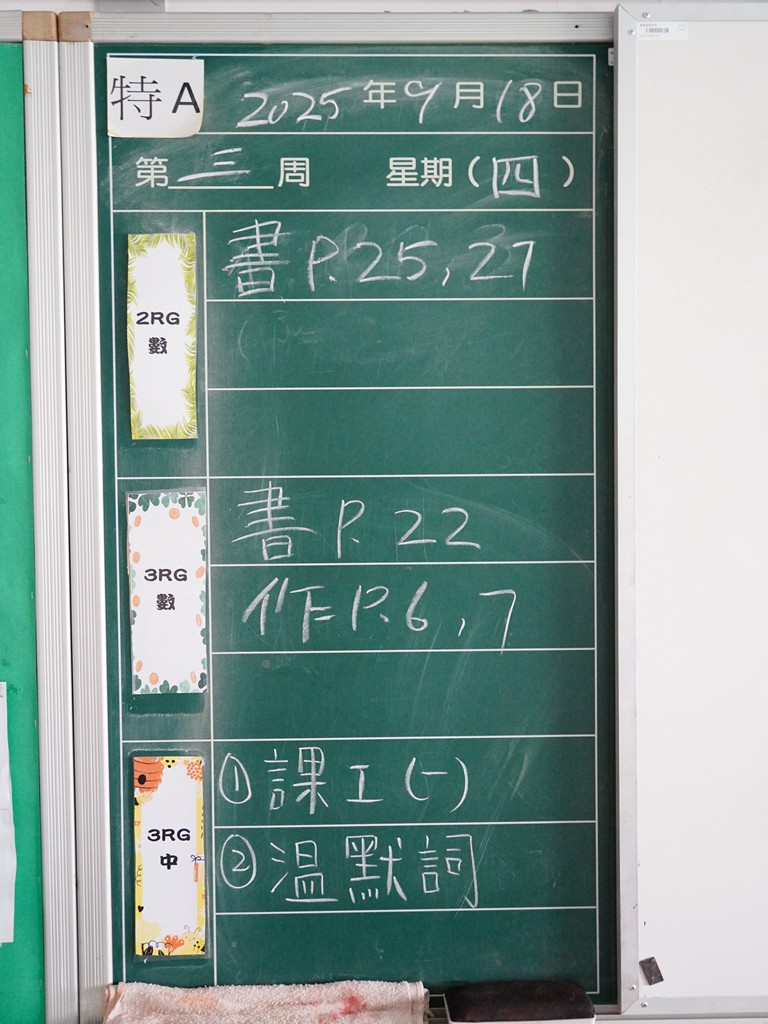 特A
2025年9月18日
第三周 星期(四)
2RG
數
書 P.25,27
3RG
數
書 P.22
作 P.6,7
3RG
中
①課工(一)
②溫默詞